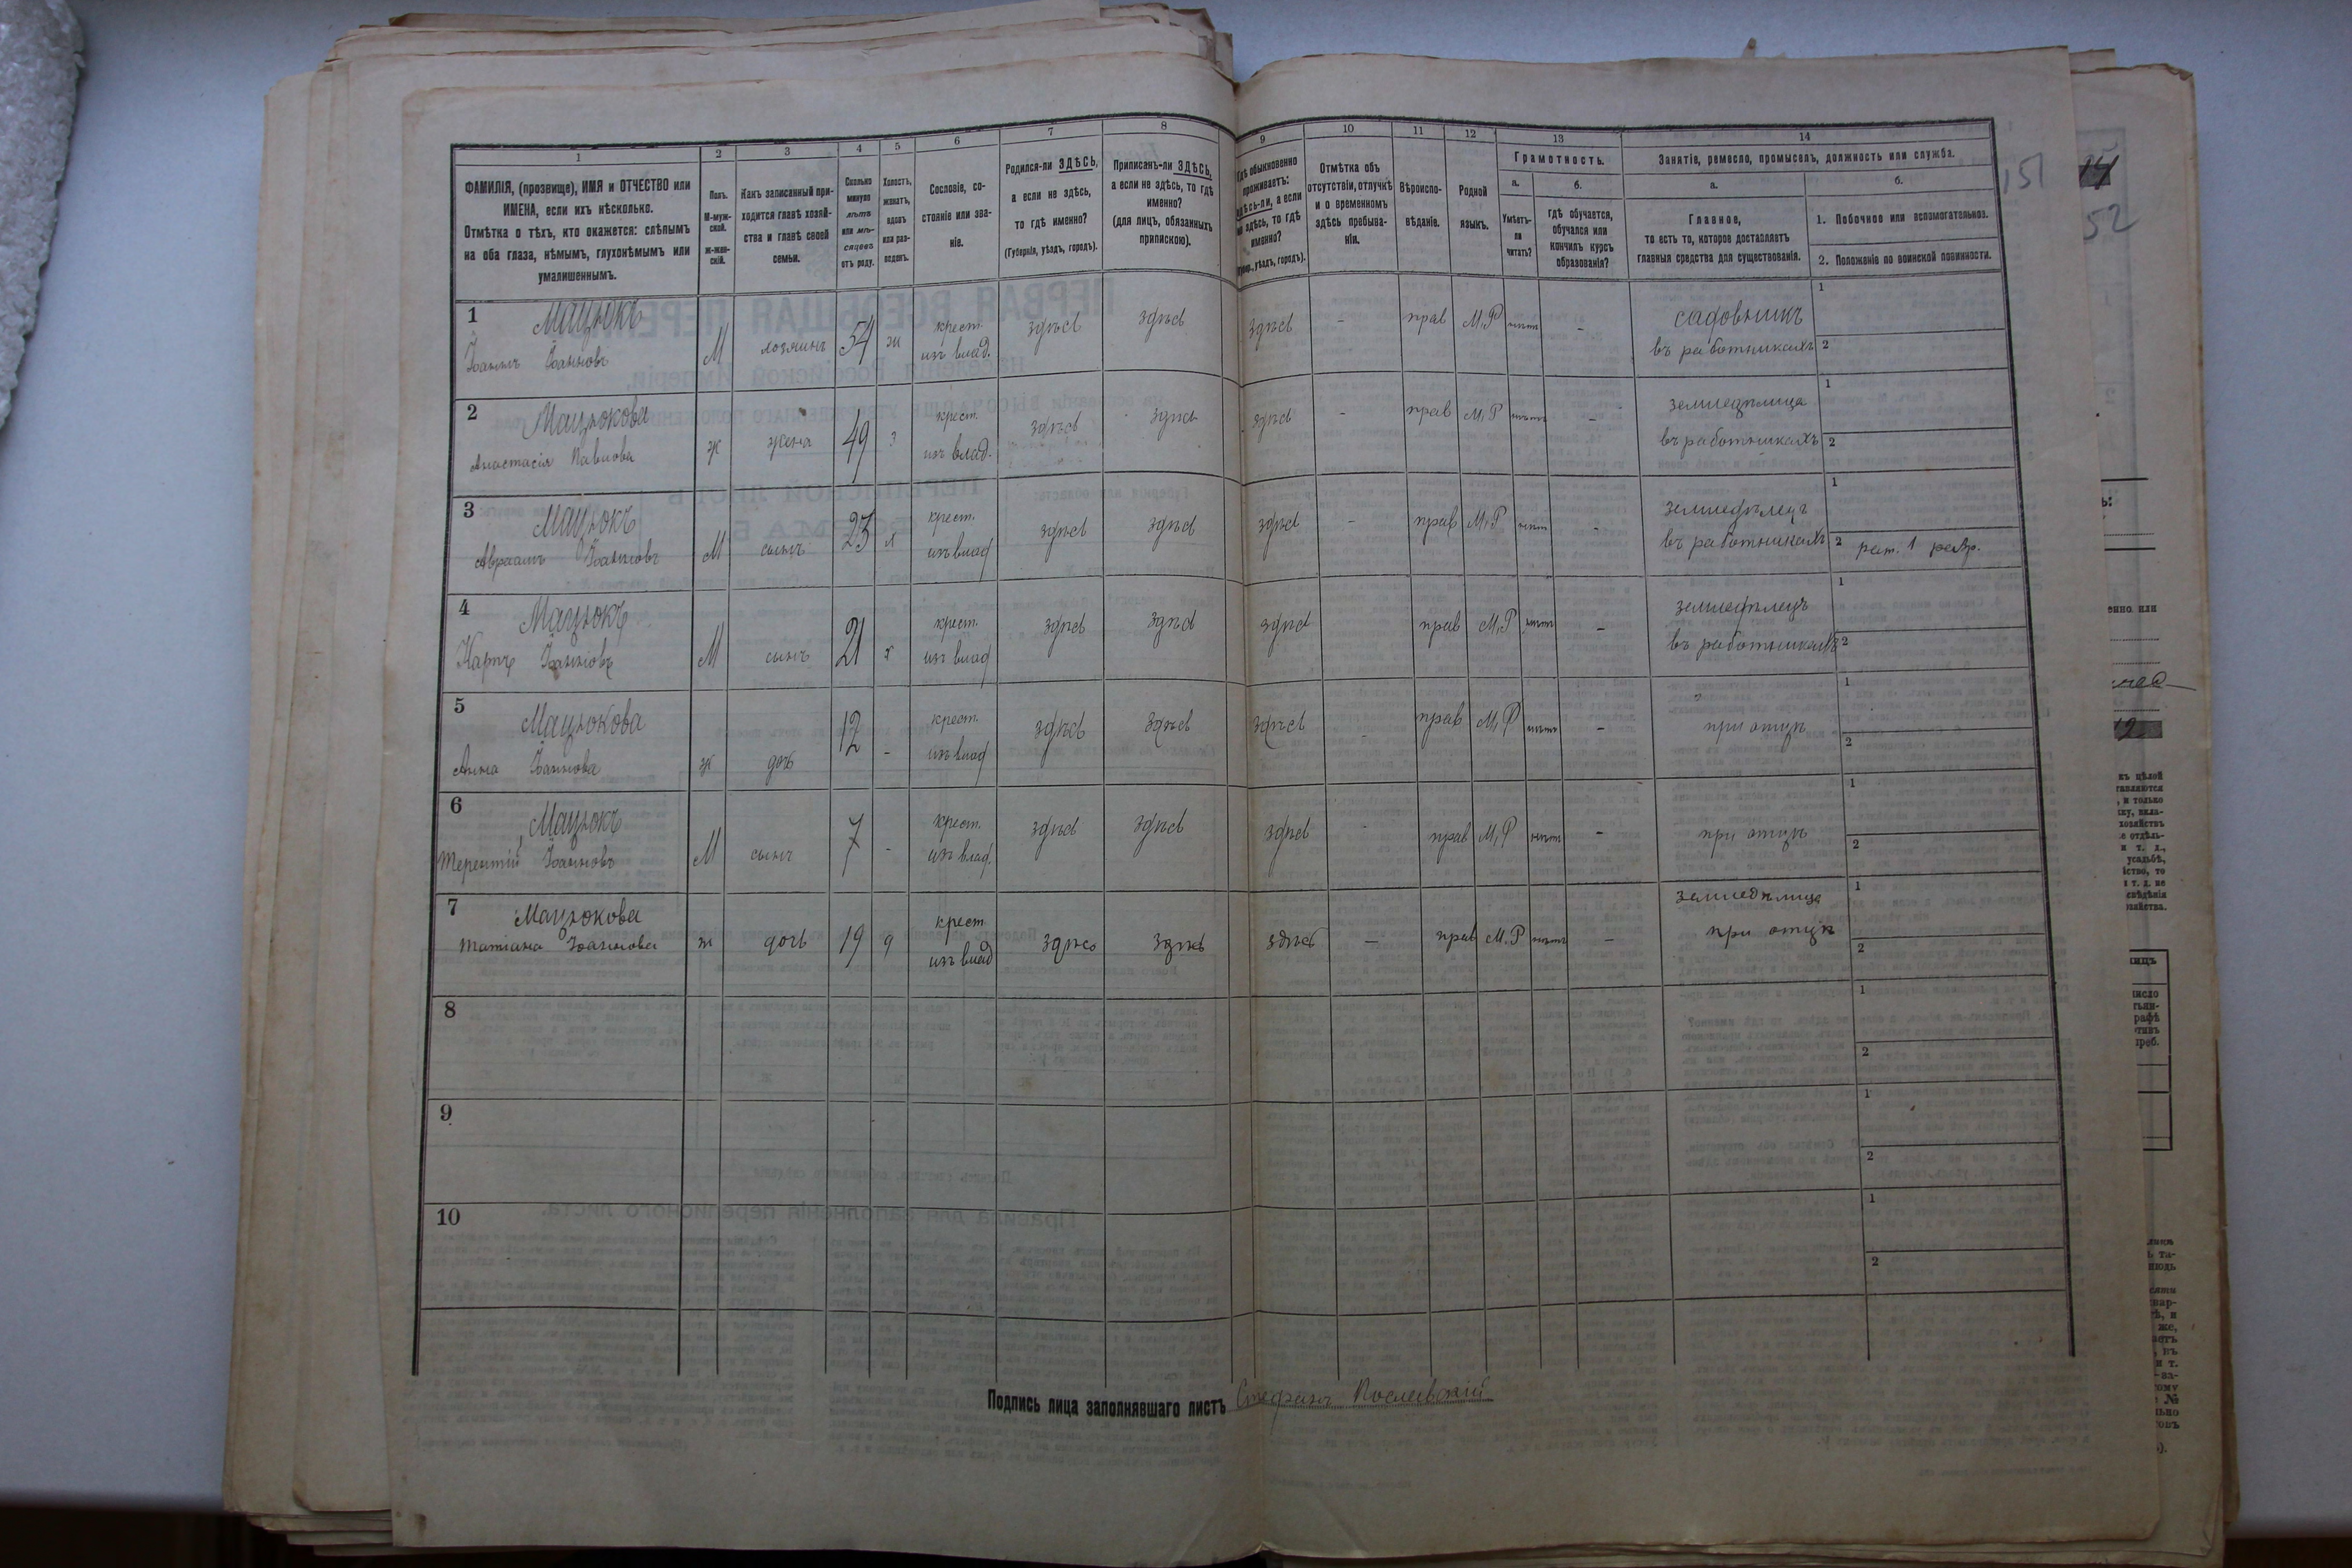 1 2 3 4 5 6 7 8 9 10 11 12 13 14
ФАМИЛІЯ, (прозвище), ИМЯ и ОТЧЕСТВО или ИМЕНА, если ихъ нѣсколько.
Отмѣтка о тѣхъ, кто окажется: слѣпымъ на оба глаза, нѣмымъ, глухонѣмымъ или умалишеннымъ.
Полъ.
М-мужской.
Ж-женскій.
Какъ записанный приходится главѣ хозяйства и главѣ своей семьи.
Сколько минуло лѣтъ или мѣсяцевъ отъ роду.
Холостъ, женатъ, вдовъ или разведенъ.
Сословіе, состояніе или званіе.
Родился-ли ЗДѢСЬ, а если не здѣсь, то гдѣ именно?
(Губернія, уѣздъ, городъ).
Приписанъ-ли ЗДѢСЬ, а если не здѣсь, то гдѣ именно?
(для лицъ, обязанныхъ припискою).
Гдѣ обыкновенно проживаетъ: здѣсь-ли, а если не здѣсь, то гдѣ именно?
уѣздъ, городъ).
Отмѣтка объ отсутствіи, отлучкѣ и о временномъ здѣсь пребываніи.
Вѣроисповѣданіе.
Родной языкъ.
Грамотность.
а. Умѣетъ-ли читать?
б. гдѣ обучается, обучался или кончилъ курсъ образованія?
Занятіе, ремесло, промыселъ, должность или служба.
а. Главное, то есть то, которое доставляетъ главныя средства для существованія.
б.
1. Побочное или вспомогательное.
2. Положеніе по воинской повинности.
151
14
52
1 Мацюкъ Іоаннъ Іоанновъ М хозяинъ 54 ж крест. изъ влад. здѣсь здѣсь здѣсь - прав М,Р нѣтъ - садовникъ въ работникахъ 1 2
2 Мацюкова Анастасія Павлова ж жена 49 з крест. изъ влад. здѣсь здѣсь здѣсь - прав М,Р нѣтъ - земледѣлица въ работникахъ 1 2
3 Мацюкъ Авраамъ Іоанновъ М сынъ 23 х крест. изъ влад здѣсь здѣсь здѣсь - прав М,Р нѣтъ - земледѣлецъ въ работникахъ 1 2 рат. 1 разр.
4 Мацюкъ Карпъ Іоанновъ М сынъ 21 х крест. изъ влад здѣсь здѣсь здѣсь прав М,Р нѣтъ - земледѣлецъ въ работникахъ 1 2
5 Мацюкова Анна Іоаннова ж дочь 12 - крест. изъ влад здѣсь здѣсь здѣсь - прав М,Р нѣтъ - при отцѣ 1 2
6 Мацюкъ Терентій Іоанновъ М сынъ 7 - крест. изъ влад. здѣсь здѣсь здѣсь - прав М,Р нѣтъ - при отцѣ 1 2
7 Мацюкова Татіана Іоаннова ж дочь 19 д крест изъ влад здѣсь здѣсь здѣсь - прав М.Р нѣтъ - земледѣлица при отцѣ 1 2
8 1 2
9 1 2
10 1 2
Подпись лица заполнявшаго листъ Стефанъ